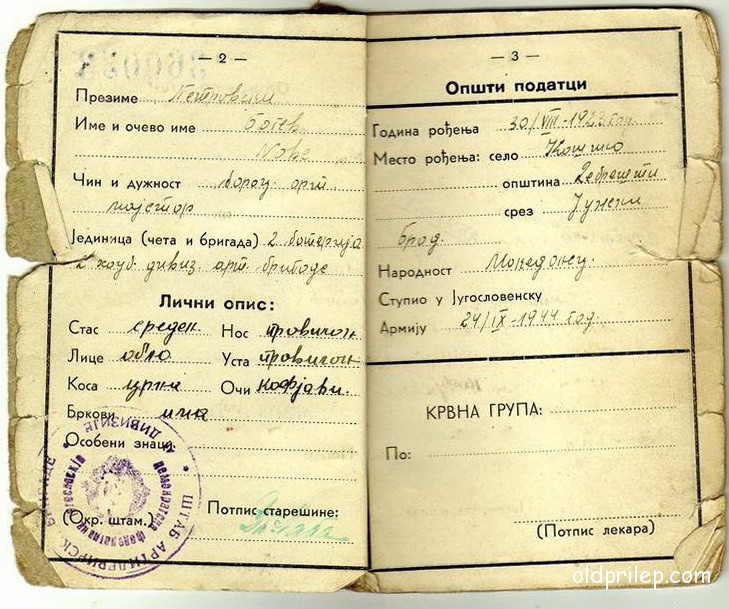 — 2 —
Презиме Петровски
Име и очево име Богев
Чин и дужност борац арт
мајстор
Јединица (чета и бригада) 2 батерија
2 хауб. дивиз. арт. бригаде
Лични опис:
Стас среден Нос правилан
Лице обло Уста правилан
Коса црна Очи кафјави.
Бркови има
Особени знаци:
Потпис старешине:
(Окр. штам.)
ШТАБ АРТИЛЕРИСК БРИГАДЕ
ДИВИЗИЈЕ
— 3 —
Општи податци
Година рођења 30/VIII-1923 год
Место рођења: село
општина Дебрешти
срез Јужни
брод.
Народност Македонец.
Ступио у Југословенску
Армију 24/IX-1944 год.
КРВНА ГРУПА:
По:
(Потпис лекара)
oldprilep.com